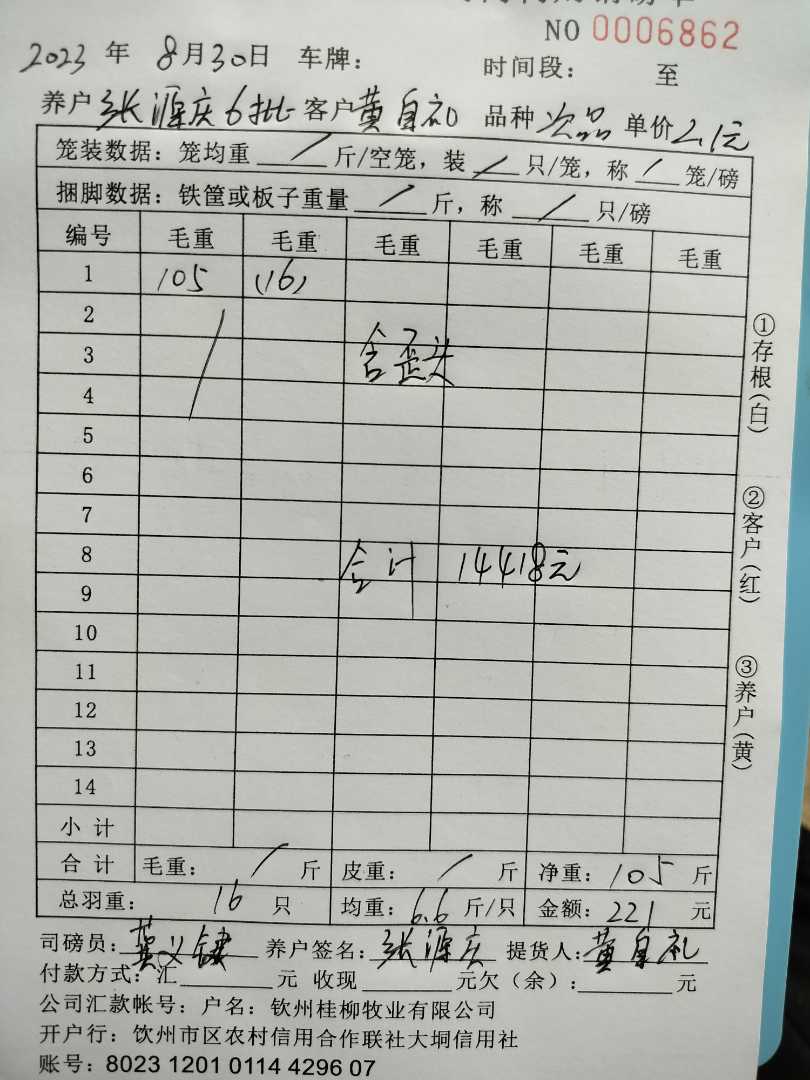 NO 0006862
2023 年 8月30日 车牌：
时间段： 至
养户 张源庆6批 客户 黄自礼 品种 次品 单价 2.1元
笼装数据：笼均重 / 斤/空笼，装 / 只/笼，称 / 笼/磅
捆脚数据：铁筐或板子重量 / 斤，称 / 只/磅
编号 毛重 毛重 毛重 毛重 毛重 毛重
1 105 (16)
2
3 含歪头
4
5
6
7
8 合计 14418元
9
10
11
12
13
14
小 计
合 计 毛重： / 斤 皮重： / 斤 净重：105 斤
总羽重： 16 只 均重：6.6 斤/只 金额：221 元
司磅员： 养户签名：张源庆 提货人：黄自礼
付款方式：汇 元 收现 元欠（余）： 元
公司汇款帐号：户名：钦州桂柳牧业有限公司
开户行：饮州市区农村信用合作联社大垌信用社
账号：8023 1201 0114 4296 07
①存根（白）
②客户（红）
③养户（黄）